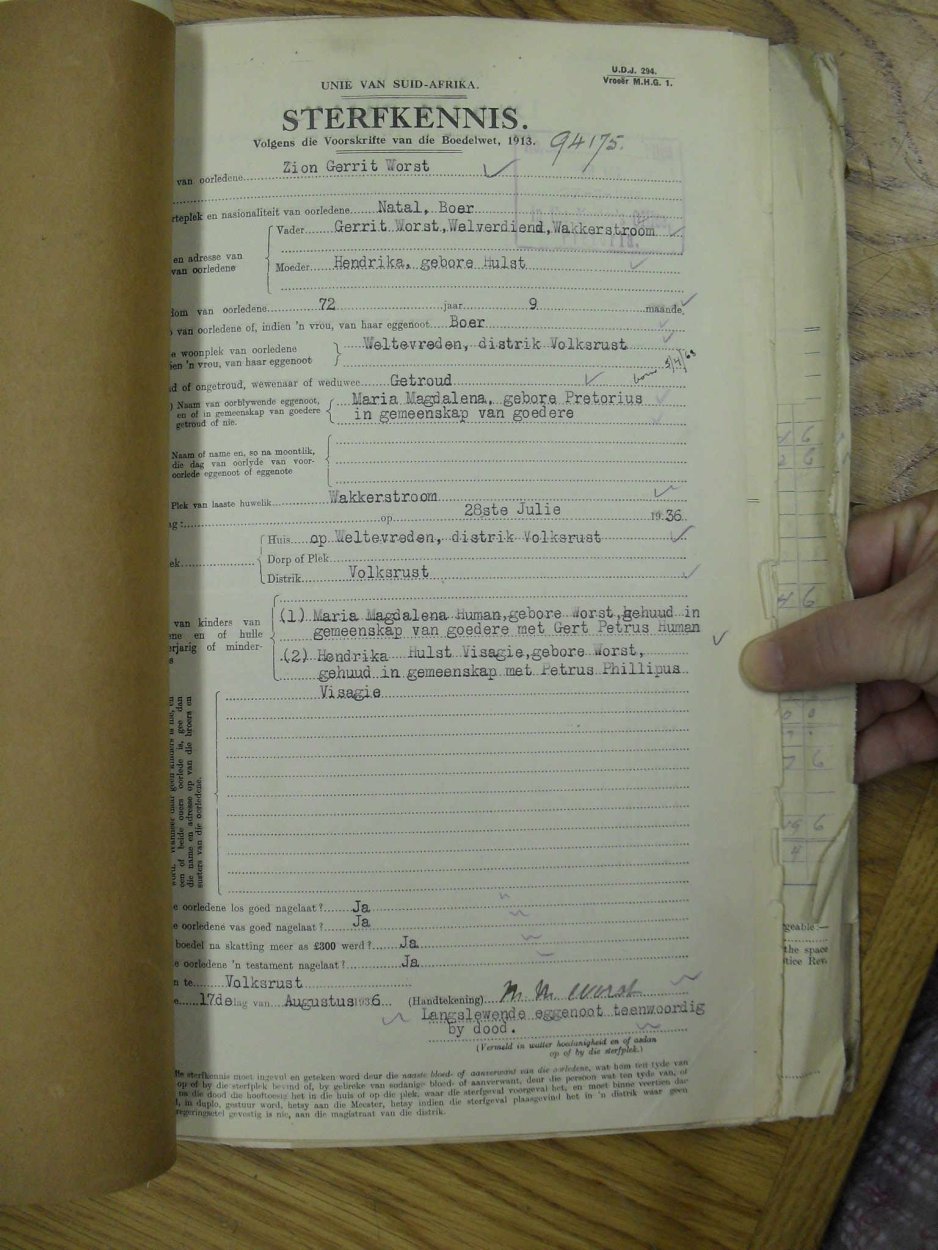 U.D.J. 294.
Vroeër M.H.G. 1.
UNIE VAN SUID-AFRIKA.
STERFKENNIS.
Volgens die Voorskrifte van die Boedelwet, 1913. 94175.
van oorledene Zion Gerrit Worst
rteplek en nasionaliteit van oorledene Natal, Boer
Vader Gerrit Worst, Welverdiend, Wakkerstroom
en adresse van
van oorledene
Moeder Hendrika, gebore Hulst
dom van oorledene 72 jaar 9 maande
van oorledene of, indien 'n vrou, van haar eggenoot Boer
e woonplek van oorledene Weltevreden, distrik Volksrust
en 'n vrou, van haar eggenoot
born 5/4/63
d of ongetroud, wewenaar of weduwee Getroud
) Naam van oorblywende eggenoot, Maria Magdalena, gebore Pretorius
en of in gemeenskap van goedere in gemeenskap van goedere
getroud of nie.
Naam of name en, so na moontlik,
die dag van oorlyde van voor-
oorlede eggenoot of eggenote
Plek van laaste huwelik Wakkerstroom
ag: op 28ste Julie 1936.
Huis op Weltevreden, distrik Volksrust
ek Dorp of Plek
Distrik Volksrust
van kinders van
ne en of hulle
erjarig of minder-
s
(1) Maria Magdalena Human, gebore Worst, gehuud in
gemeenskap van goedere met Gert Petrus Human
(2) Hendrika Hulst Visagie, gebore Worst,
gehuud in gemeenskap met Petrus Phillipus
Visagie
een of beide ouers oorlede is, gee dan
die name en adresse op van die broers en
susters van die oorledene.
e oorledene los goed nagelaat? Ja
e oorledene vas goed nagelaat? Ja
boedel na skatting meer as £300 werd? Ja
e oorledene 'n testament nagelaat? Ja
n te Volksrust
e 17de dag van Augustus 1936 (Handtekening) M M Worst
Langslewende eggenoot teenwoordig
by dood.
(Vermeld in watter hoedanigheid en of sodan
op of by die sterfplek.)
ie sterfkennis moet ingevul en geteken word deur die naaste bloed- of aanverwant van die oorledene, wat ten tyde van
op of by die sterfplek bevind of, by gebreke van sodanige bloed- of aanverwant, deur die persoon wat ten tyde van, of
na die dood die hooftoesig het in die huis of op die plek, waar die sterfgeval voorgeval het, en moet binne veertien dae
in duplo, gestuur word, hetsy aan die Meester, hetsy indien die sterfgeval plaasgevind het in 'n distrik waar geen
regeringsetel gevestig is nie, aan die magistraat van die distrik.
geable:—
the space
tice Rev.